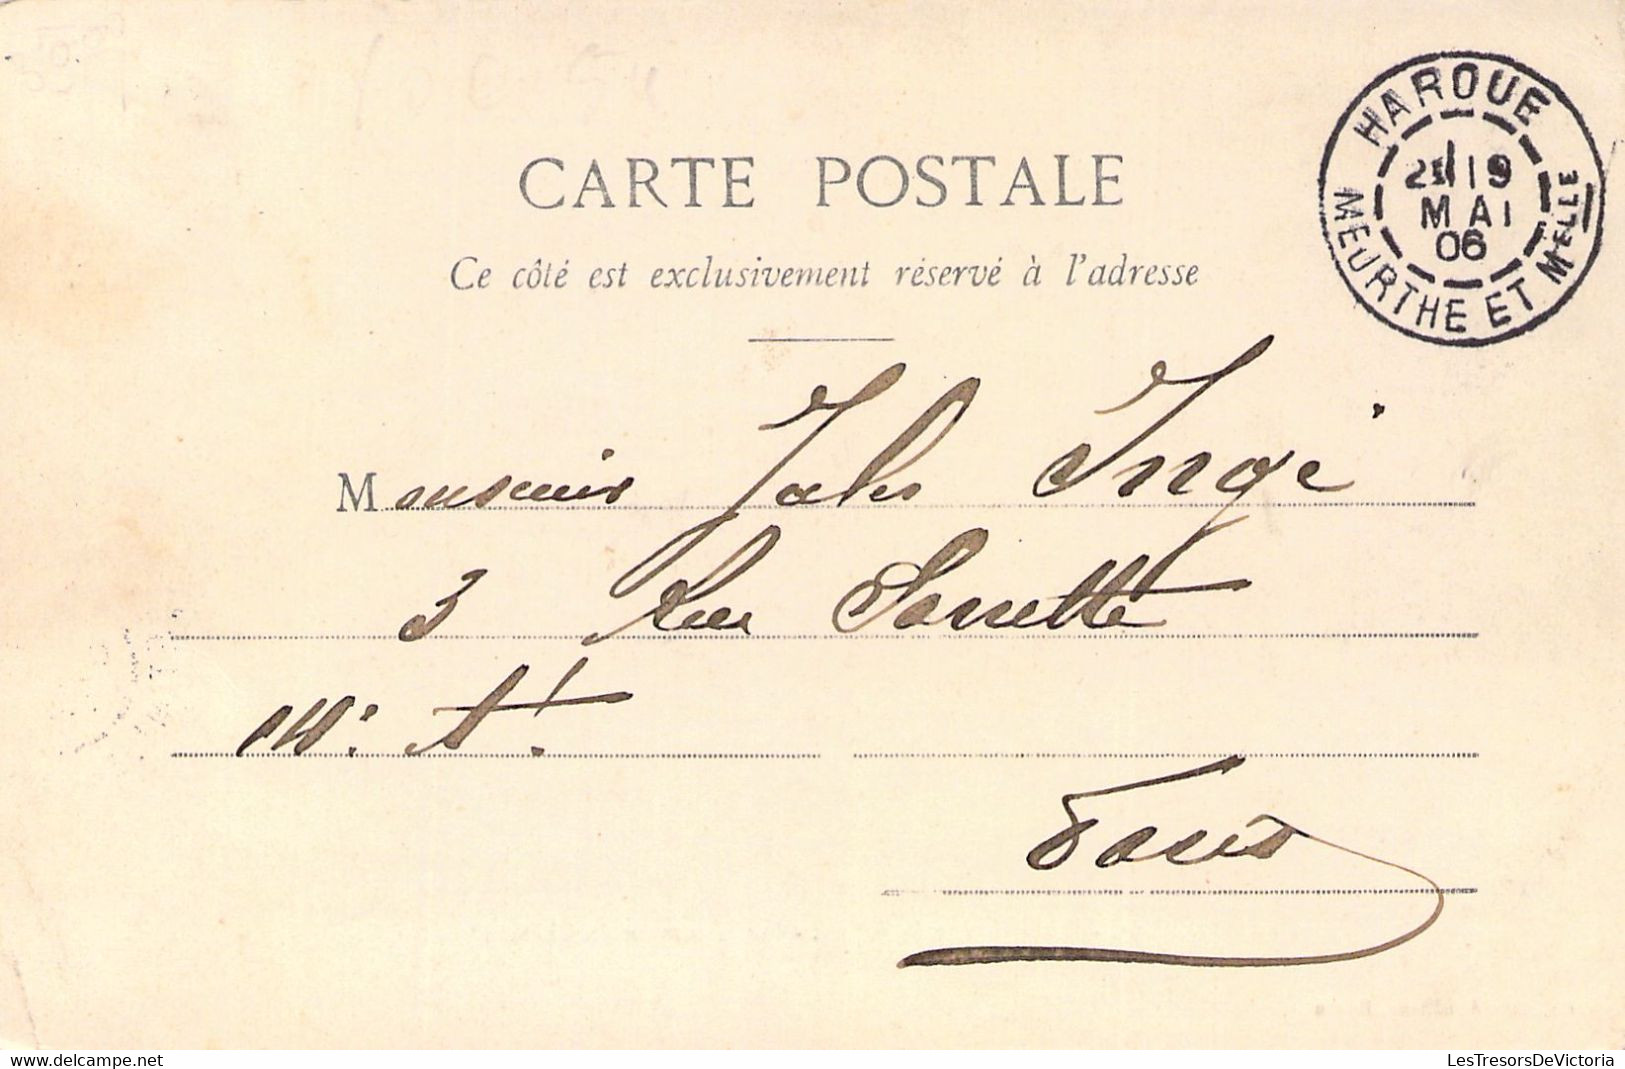 CARTE POSTALE
Ce côté est exclusivement réservé à l'adresse
HAROUE
19
MAI
06
MEURTHE ET MELLE
Monsieur Jules Ingé
3 Rue Sarrette
14e At.
Paris
LesTresorsDeVictoria